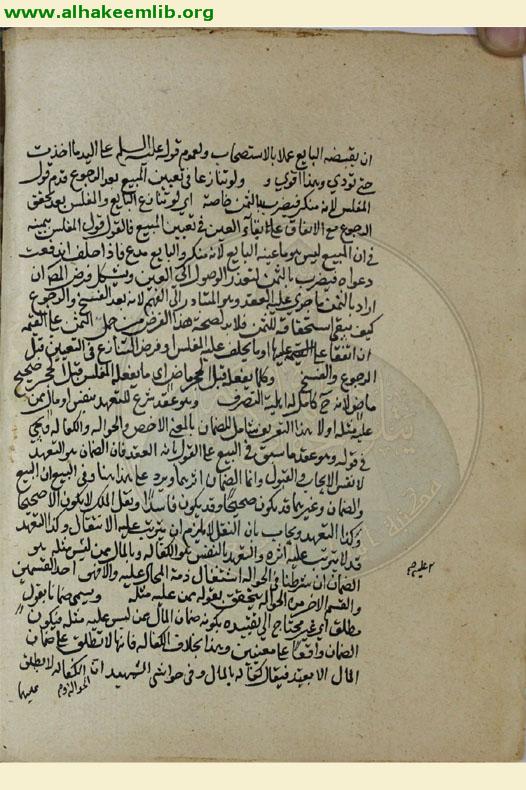 www.alhakeemlib.org
ان يقبضه البايع عملا بالاستصحاب ولعموم قوله عليه السلم على اليد ما اخذت
حتى تودي وهذا اقوى و ولو تنازعا في تعيين المبيع بعد الرجوع قدم قول
المفلس لانه منكر فيضرب بالثمن خاصة اي لو تنازع البايع والمفلس بعد تحقق
الرجوع مع الاتفاق على بقاء العين في تعيين المبيع فالقول قول المفلس بيمينه
في ان المبيع ليس هو ما عينه البايع لانه منكر والبايع مدع فاذا حلف اندفعت
دعواه فيضرب بالثمن لتعذر الوصول الى العين ويشكل فرض المص ان
اراد بالثمن ما جرى عليه العقد وهو المتبادر الى الفهم لانه بعد الفسخ والرجوع
كيف يبقى استحقاقه للثمن فلابد لصحة هذا الفرض من حمل الثمن على القيمة
ان اتفقا عليها او ما يحلف عليه المفلس او فرض التنازع في التعيين قبل
الرجوع والفسخ وكلما يفعله قبل الحجر ماض اي ما يفعله المفلس قبل الحجر صحيح
ماض لانه ح كامل اهلية التصرف وهو عقد شرع للتعهد بنفس او مال ممن
عليه مثله اولا هذا التعريف شامل للضمان بالمعنى الاخص والحوالة والكفالة ويجي
في قوله وهو عقد ما سبق في البيع على القول بانه العقد فان الضمان هو التعهد
لا نفس الايجاب والقبول وانما الضمان اثرهما ويرد على هذا هنا وفي البيع ان البيع
والضمان وغيرهما قد يكون صحيحا وقد يكون فاسدا ونقل الملك لا يكون الا صحيحا
وكذا التعهد ويجاب بان النقل لا يلزم ان يترتب عليه الانتقال وكذا التعهد
قد لا يترتب عليه اثره والتعهد بالنفس هو الكفالة وبالمال ممن ليس مثله هو
الضمان ان شرطنا في الحوالة اشتغال ذمة المحال عليه والا فهي احد القسمين
والقسم الاخر من الحوالة يتحقق بقوله ممن عليه مثله ويسمى ضمانا بقول
مطلق اي غير محتاج الى تقييده بكونه ضمان المال عن ليس عليه مثله فيكون
الضمان واقعا على معنيين وهذا بخلاف الكفالة فانها لا تطلق على ضمان
المال الا بعيد فيقال كفالة بالمال وفي حواشي الشهيد ان الكفالة لا يطلق
عليها